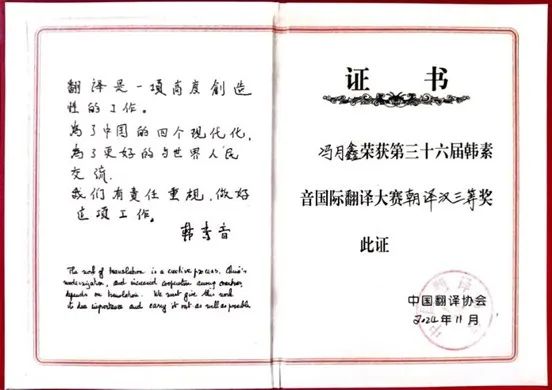 翻译是一項高度創造
性的工作。
為了中国的四个现代化,
為了更好的与世界人民
交流.
我们有責任重視,做好
這項工作。
韩素音
The work of translation is a creative process. China's
modernization, and increased cooperation among countries,
depends on translation. We must give this work
its due importance and carry it out as well as possible
证书
冯月鑫荣获第三十六届韩素
音国际翻译大赛朝译汉三等奖
此证
中国翻译协会
2024年11月